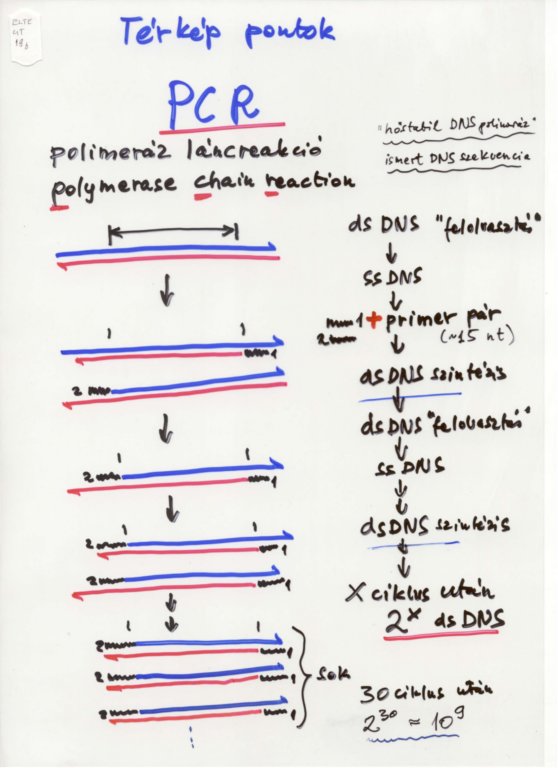 ELTE
Térkép pontok
PCR
polimeráz láncreakció
polymerase chain reaction
"hőstabil DNS polimeráz"
ismert DNS szekvencia
ds DNS "felolvasztás"
ss DNS
1 + primer pár
2 (~15 nt)
ds DNS szintézis
ds DNS "felolvasztás"
ss DNS
ds DNS szintézis
X ciklus után
2^x ds DNS
30 ciklus után
2^30 ≈ 10^9
1 1
1
2
1 1
2 1
1 1
2 1
2 1
1 1
2 1
2 1
2 1
sok